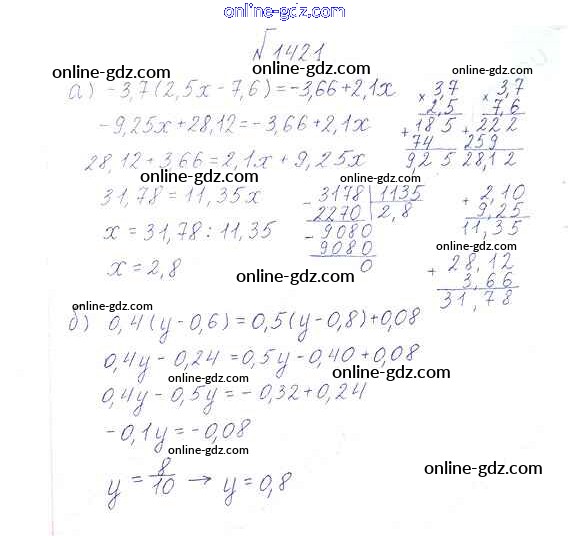 online-gdz.com
№1421
online-gdz.com online-gdz.com
а) -3,7(2,5x-7,6)=-3,66+2,1x
-9,25x+28,12=-3,66+2,1x
28,12+3,66=2,1x+9,25x
31,78=11,35x
x=31,78:11,35
x=2,8
× 3,7
2,5
+ 185
74
925
× 3,7
7,6
+ 222
259
28,12
online-gdz.com
online-gdz.com
- 3178 | 1135
2270 | 2,8
- 9080
9080
0
+ 2,10
9,25
11,35
online-gdz.com
online-gdz.com
+ 28,12
3,66
31,78
online-gdz.com
б) 0,4(y-0,6)=0,5(y-0,8)+0,08
0,4y-0,24=0,5y-0,40+0,08
online-gdz.com online-gdz.com
0,4y-0,5y=-0,32+0,24
-0,1y=-0,08
online-gdz.com
y=8/10 → y=0,8
online-gdz.com